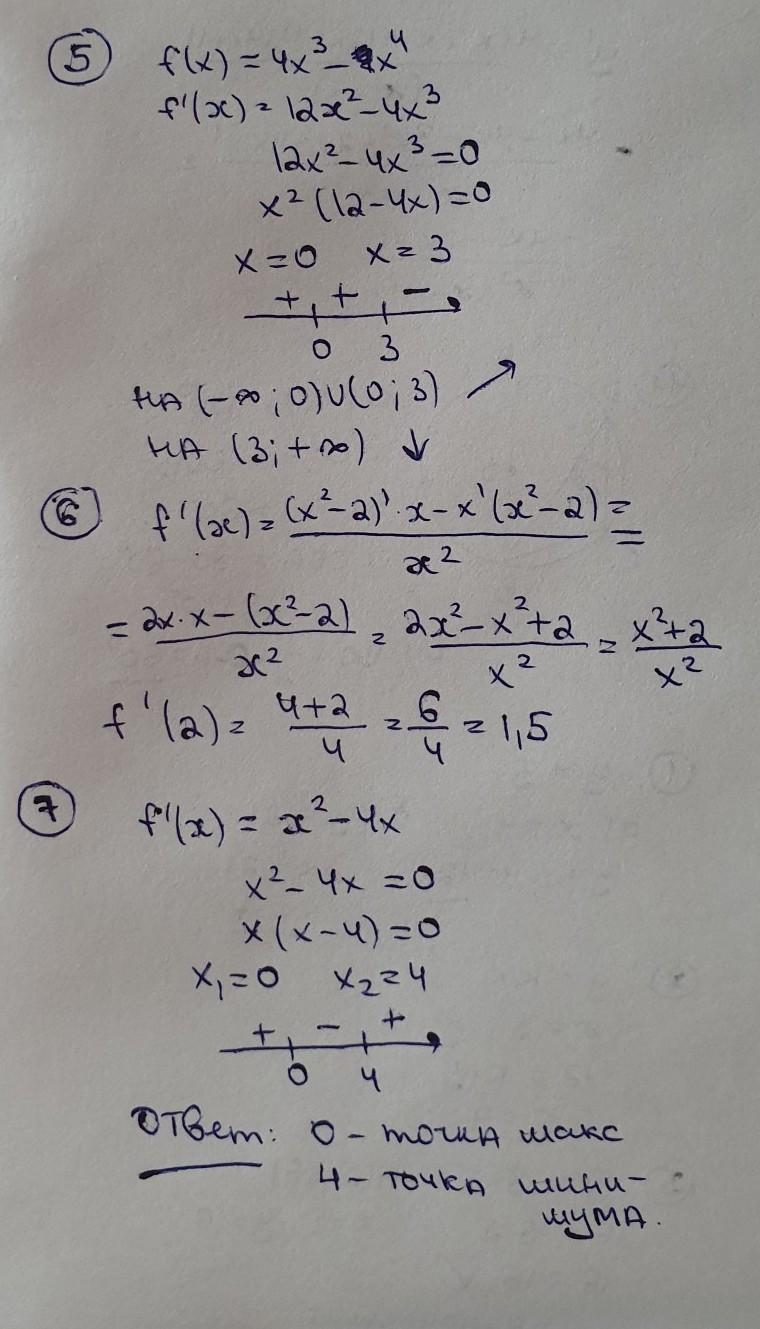 5 f(x) = 4x³ - x⁴
f'(x) = 12x² - 4x³
12x² - 4x³ = 0
x² (12 - 4x) = 0
x = 0 x = 3
+ + -
0 3
НА (-∞; 0)∪(0; 3) ↗
НА (3; +∞) ↓
6 f'(x) = ((x² - 2)' · x - x'(x² - 2)) / x² =
= (2x · x - (x² - 2)) / x² = (2x² - x² + 2) / x² = (x² + 2) / x²
f'(2) = (4 + 2) / 4 = 6 / 4 = 1,5
7 f'(x) = x² - 4x
x² - 4x = 0
x (x - 4) = 0
x₁ = 0 x₂ = 4
+ - +
0 4
Ответ: 0 - точка макс
4 - точка мини-
мума.